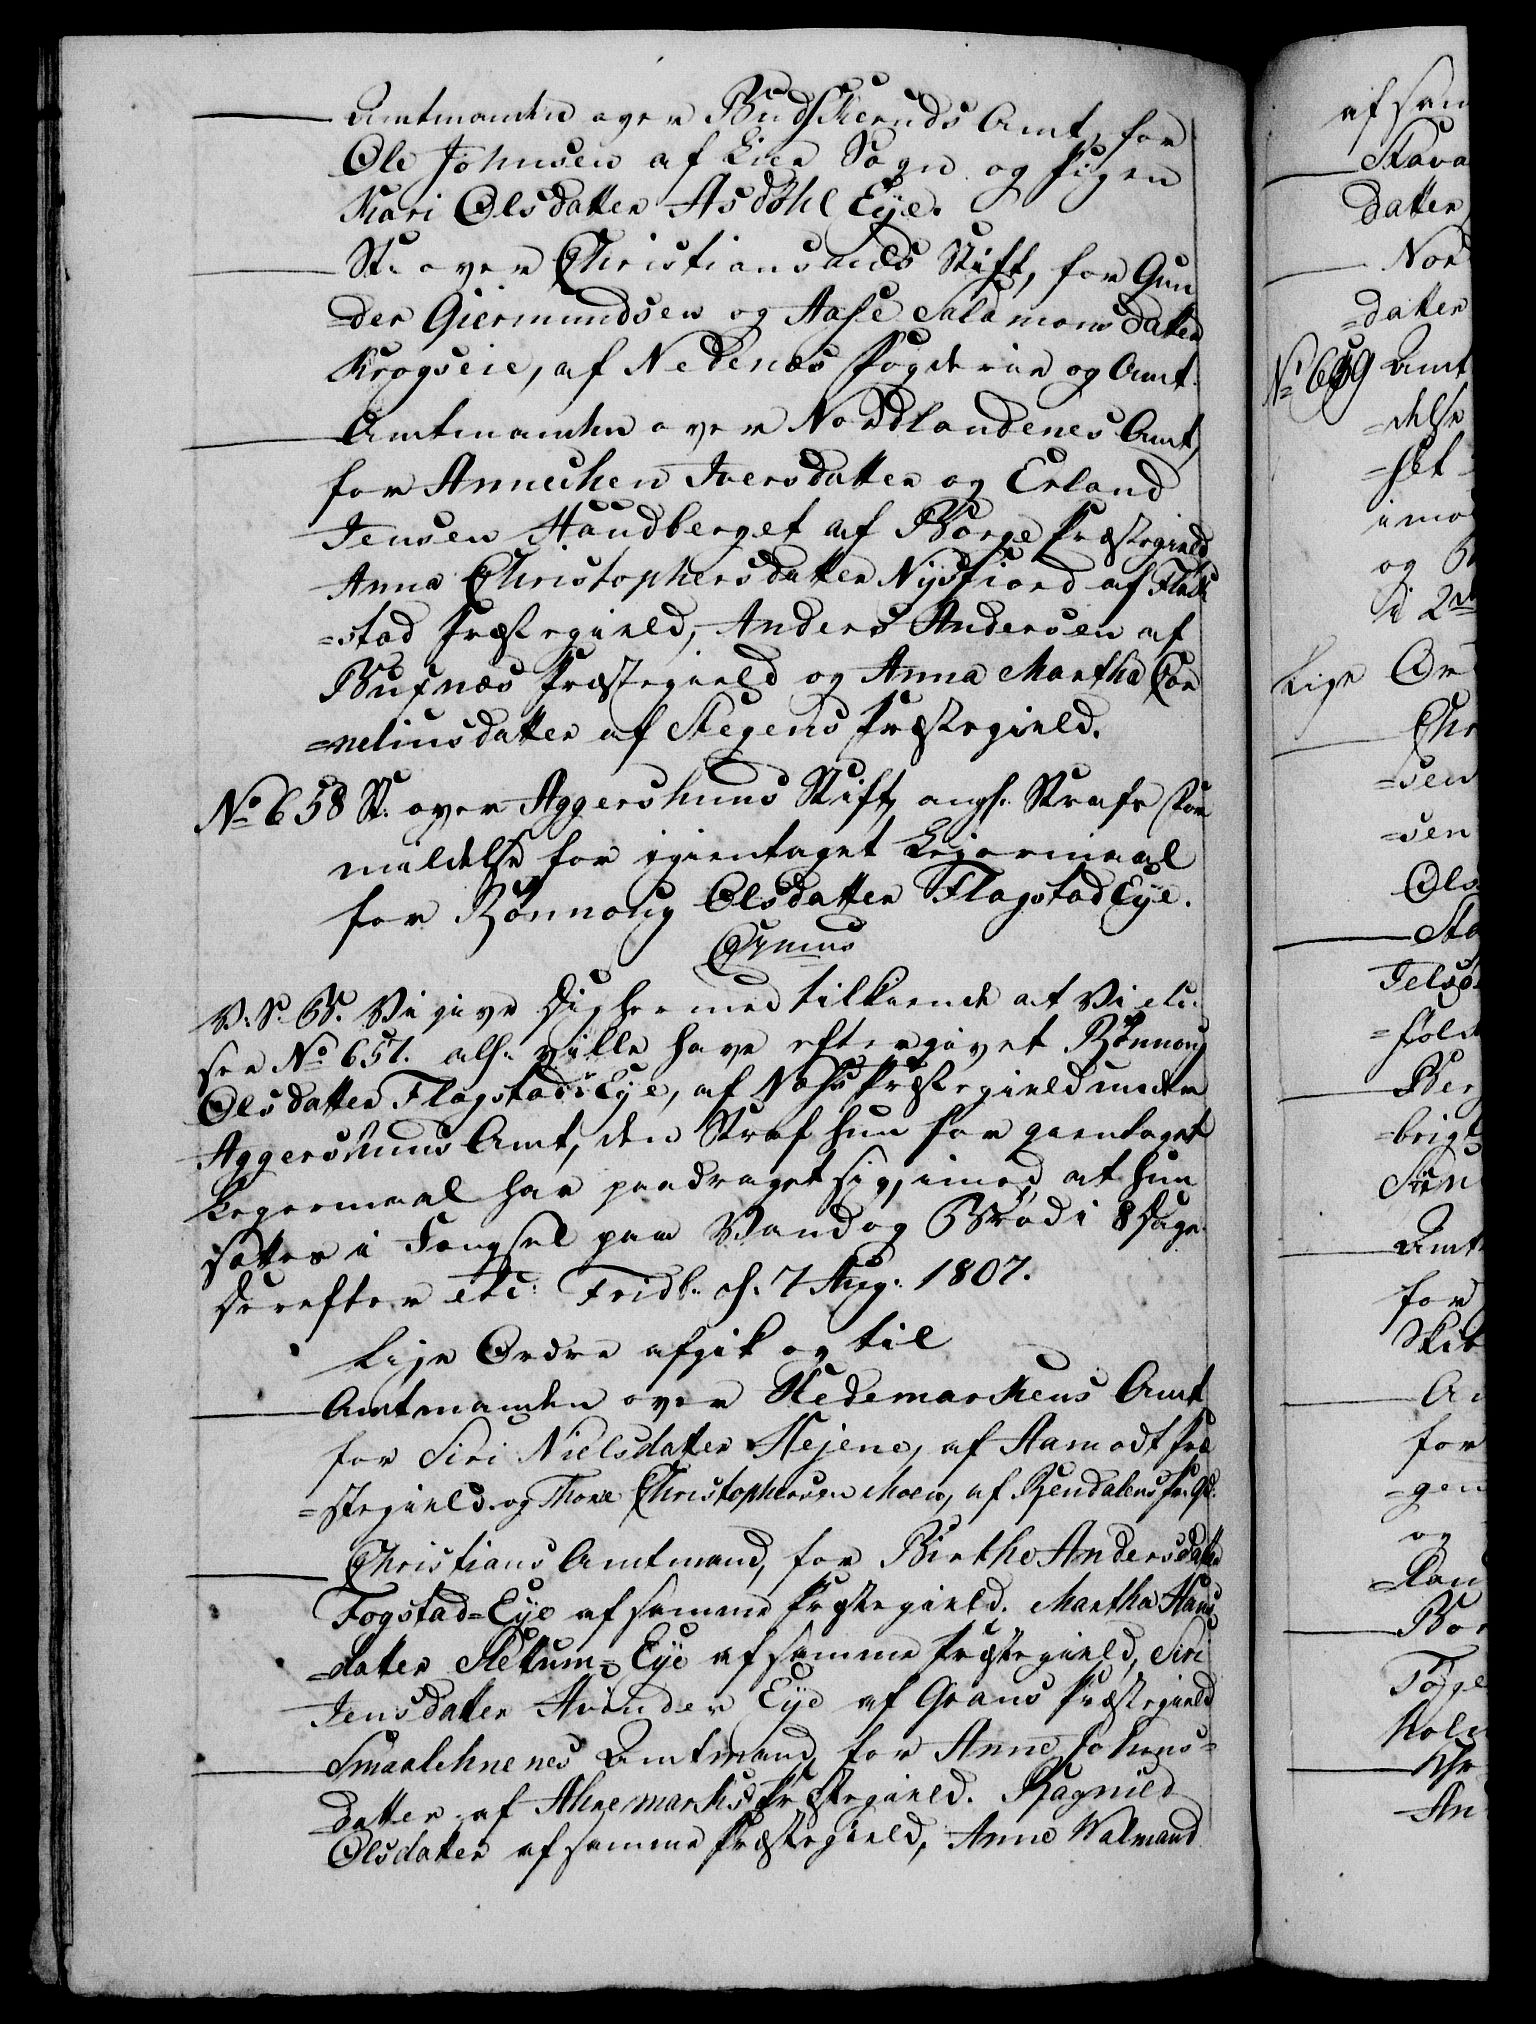 Amtmanden over Budskeruds Amt, for
Ole Johnsen af Lier Sogn og Pigen
Kari Olsdatter Asdöhl Eye.
St. over Christiansands Stift, for Gun
=der Giermundsen og Aase Salamonsdatter
Krogseie, af Nedenæs Fogderie og Amt.
Amtmanden over Nordlandenes Amt,
for Annichen Iversdatter og Erland
Jensen Haudberget af Borge Præstegield
Anna Christophersdatter Nysfiord af Flak
=stad Præstegield, Anders Andersen af
Buxnæs Præstegield og Anna Martha Cor
=neliusdatter af Stegens Præstegield.
No 658 St. over Aggershuus Stift, angl. Strafs For
mildelse for igientaget Leiermaal
for Rönnoug Olsdatter Flagstad Eye.
Cfr mus
V. S. G. Vi give Dig hermed tilkiende at Vi etc.
see No 657. als. ville have eftergivet Rönnoug
Olsdatter Flagstads Eye, af Næss Præstegield under
Aggershuus Amt, den Straf hun for gientaget
Leyermaal har paadraget sig, imod at hun
sættes i Fængsel paa Vand og Bröd i 8 Dage.
Derefter etc: Fridb. sl. 7 Aug. 1807.
Lige Ordre afgik og til
Amtmanden over Hedemarkens Amt
for Siri Nielsdatter Hejene, af Aamodt Præ
=stegield og Thore Christophersen Moen, af Rendalens Pr. Gd.
Christians Amtmand, for Birthe Andersdatter
Fogstad=Eye af samme Præstegield. Martha Hans
=datter Sletum=Eye af samme Præstegield, Siri
Jensdatter Hvinden Eye af Grans Præstegield
Smaalehnenes Amtmand, for Anne Johans=
datter af Ahremarks Præstegield. Ragnild
Olsdatter af samme Præstegield, Anne Walmand
af sam
Stava
datter
Nor
=datter
No 659 Amt
=delse
=set
imod
og B
i 2de
Lige Or
Chr
=sen
=sen
Ols
Sta
Jelsö
=fold
Ber
=brigt
Siu
Amt
for
Skib
A
for
=gen
og
=Lan
Bor
Töge
hole
Chr
An